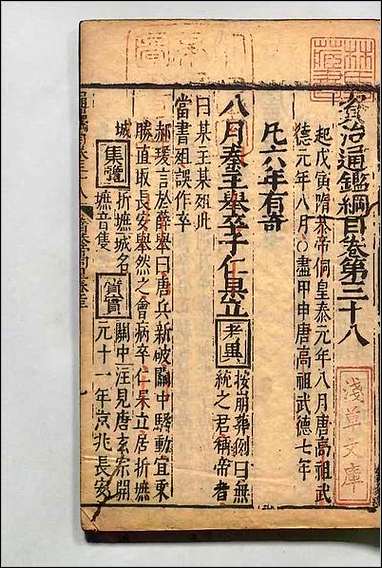 資治通鑑綱目卷第三十八
起戊寅隋恭帝侗皇泰元年八月唐高祖武
德元年八月○盡甲申唐高祖武德七年
凡六年有奇
八月秦王舉卒子仁果立
考異
按崩葬例曰無
統之君稱帝者
曰某主某殂此
當書殂誤作卒
郝瑗言於薛舉曰唐兵新破關中騷動宜乘
勝直取長安舉然之會病卒仁果立居折墌
城
集覽
折墌城名
墌音隻
質實
關中注見唐玄宗開
元十一年京兆長安
淺草文庫
林氏藏書